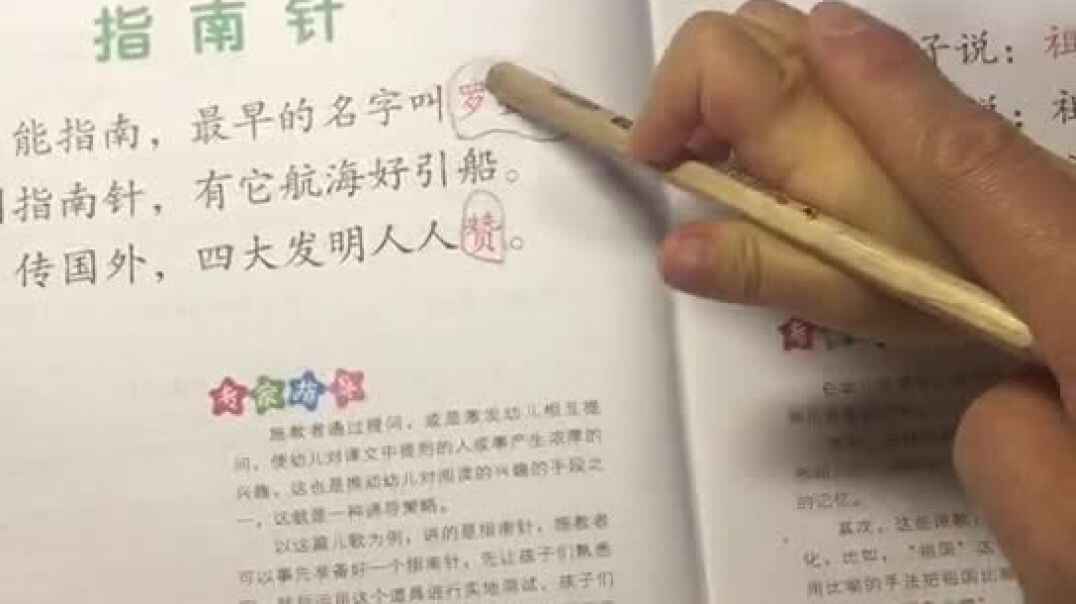 指南针
能指南，最早的名字叫罗
指南针，有它航海好引船。
传国外，四大发明人人赞。
专家指导
施教者通过提问，或是激发幼儿相互提
问，使幼儿对课文中提到的人或事产生浓厚的
兴趣，这也是推动幼儿对阅读的兴趣的手段之
一，这就是一种诱导策略。
以这篇儿歌为例，讲的是指南针，施教者
可以事先准备好一个指南针，先让孩子们熟悉
这个道具进行实地测试，孩子们
子说：祖
说：祖
的记忆。
其次，这些诗歌
化，比如，“祖国”
用比喻的手法把祖国比